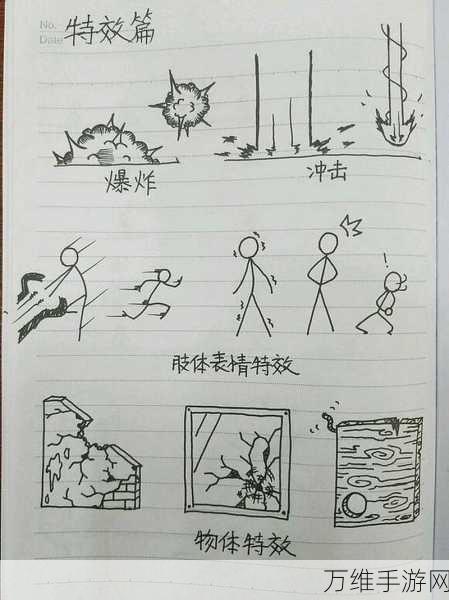 No.
Date
特效篇
爆炸
冲击
!
肢体表情特效
物体特效
万维手游网